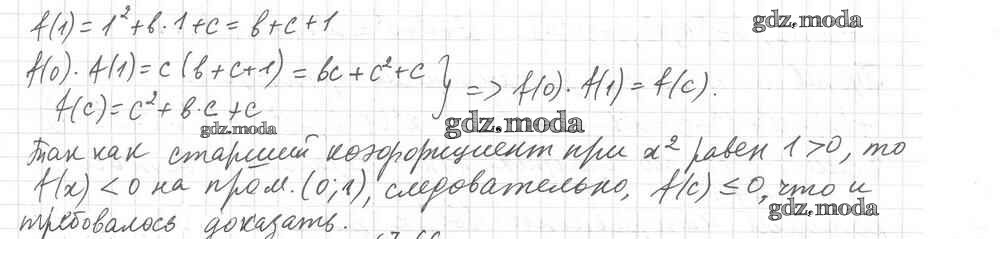 gdz.moda
f(1) = 1² + b · 1 + c = b + c + 1
f(0) · f(1) = c (b + c + 1) = bc + c² + c
f(c) = c² + b · c + c
} => f(0) · f(1) = f(c).
gdz.moda
gdz.moda
Так как старший коэффициент при x² равен 1 > 0, то
f(x) < 0 на пром. (0; 1), следовательно, f(c) ≤ 0, что и
gdz.moda
требовалось доказать.